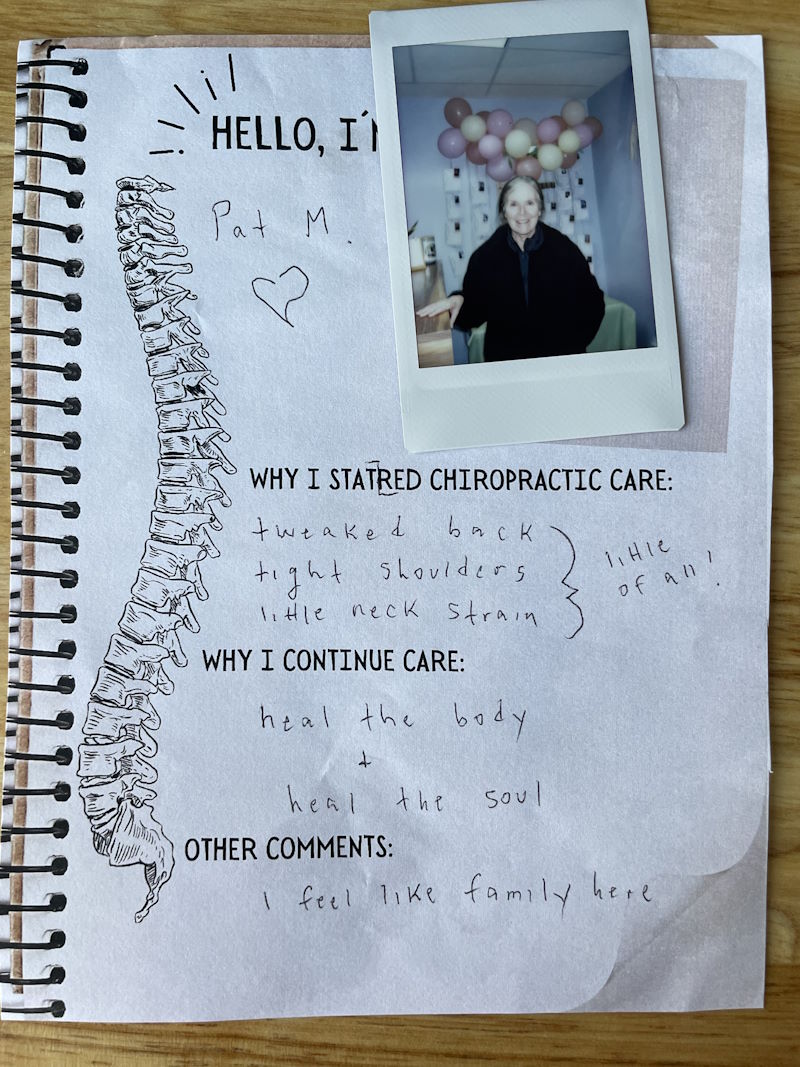 HELLO, I'M
Pat M.
WHY I STATRED CHIROPRACTIC CARE:
tweaked back
tight shoulders
little neck strain
little
of all!
WHY I CONTINUE CARE:
heal the body
+
heal the soul
OTHER COMMENTS:
I feel like family here